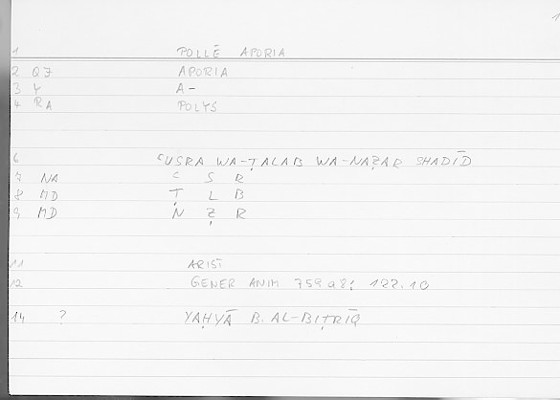 1
1 POLLĒ APORIA
2 QJ APORIA
3 Y A-
4 RA POLYS
6 ʿUSRA WA-ṬALAB WA-NAẒAR SHADĪD
7 NA ʿ S R
8 MD Ṭ L B
9 MD N Ẓ R
11 ARIST
12 GENER ANIM 759a8; 122.10
14 ? YAḤYĀ B. AL-BIṬRĪQ